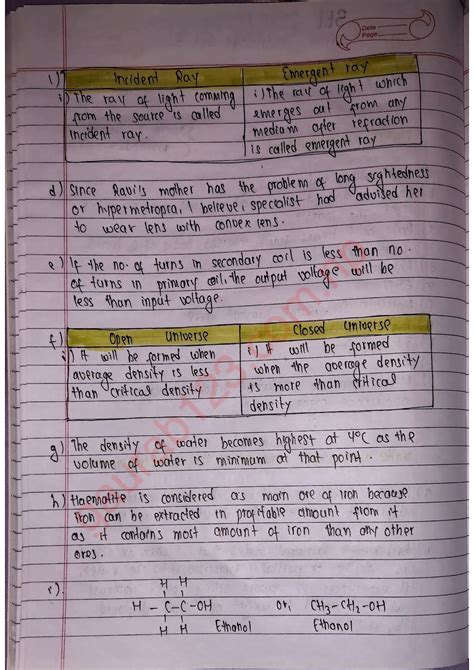 Date
Page
1) Incident Ray
Emergent ray
i) The ray of light comming
from the source is called
Incident ray.
i) The ray of light which
emerges out from any
medium after refraction
is called emergent ray
d) Since Ravi's mother has the problem of long sightedness
or hypermetropia, I believe, specialist had advised her
to wear lens with convex lens.
e) If the no. of turns in secondary coil is less than no.
of turns in primary coil, the output voltage will be
less than input voltage.
f) Open Universe
Closed Universe
i) It will be formed when
average density is less
than critical density
i. It will be formed
when the average density
is more than critical
density
g) The density of water becomes highest at 4°C as the
volume of water is minimum at that point.
h) Haematite is considered as main ore of iron because
iron can be extracted in profitable amount from it
as it contains most amount of iron than any other
ores.
H H
H - C - C - OH or, CH3-CH2-OH
H H Ethanol Ethanol